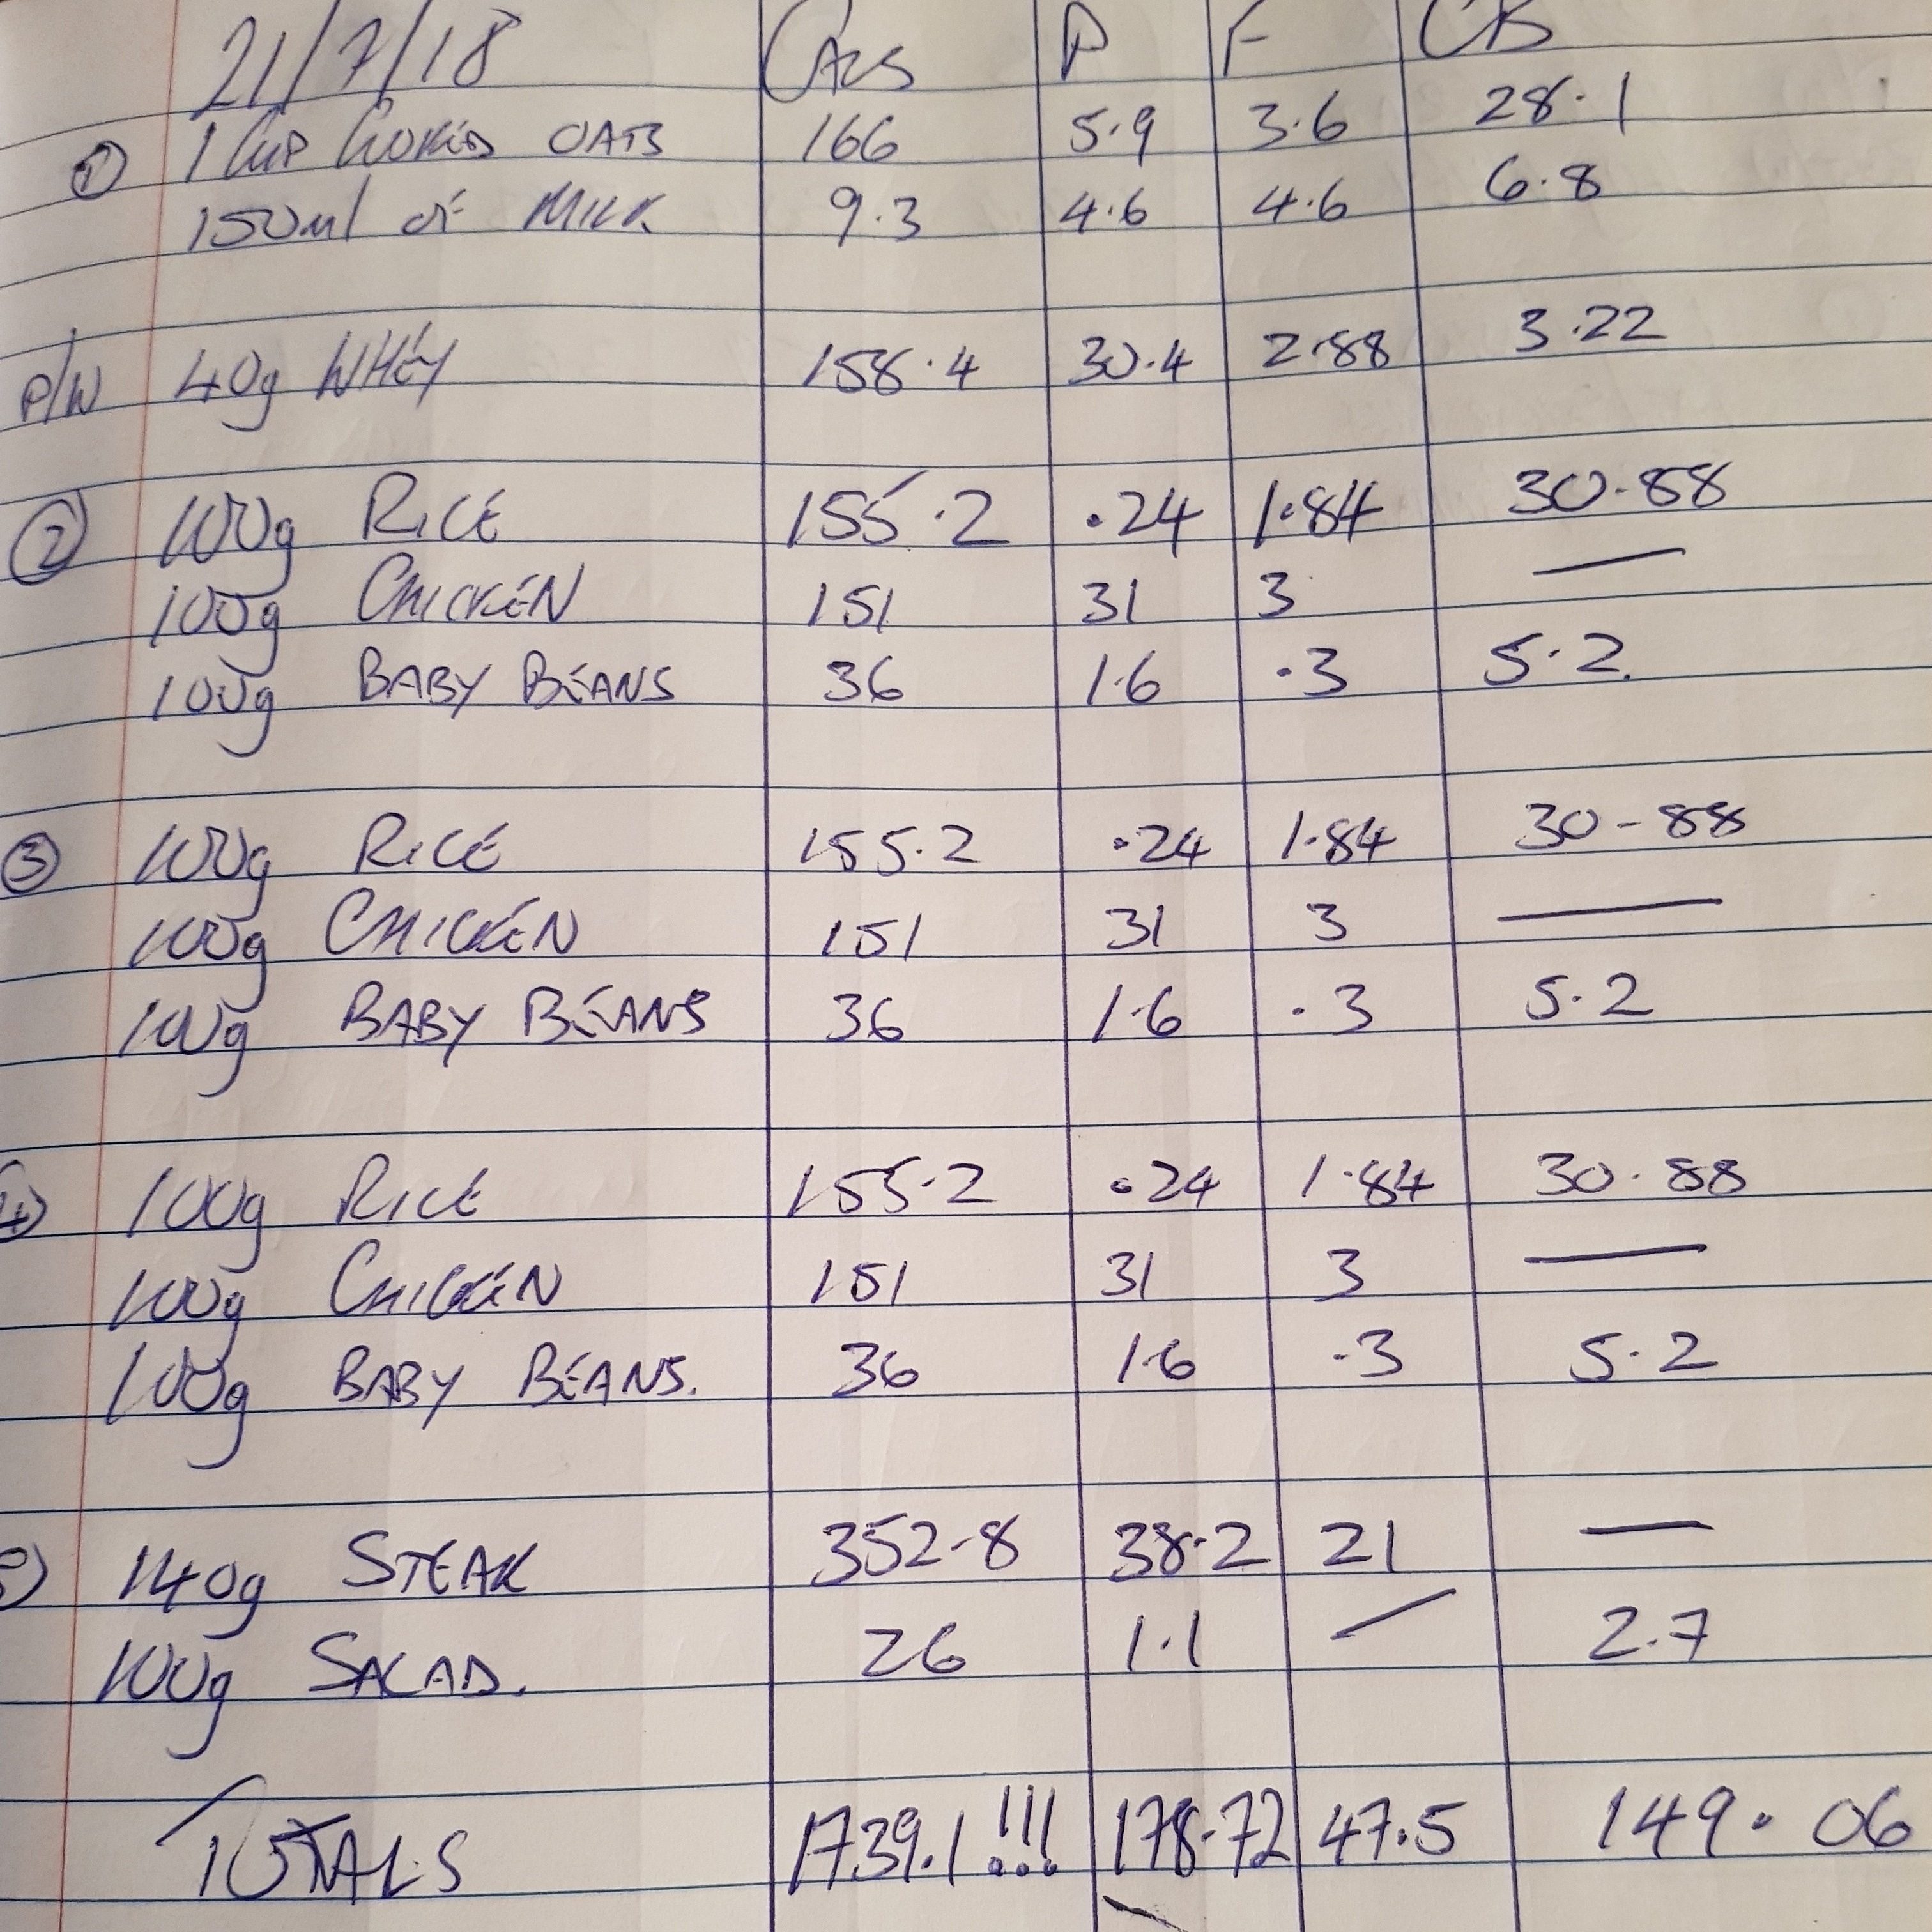 21/7/18 CALS P F CB
① 1 CUP COOKED OATS 166 5.9 3.6 28.1
150ml OF MILK 9.3 4.6 4.6 6.8
P/W 40g WHEY 158.4 30.4 2.88 3.22
② 100g RICE 155.2 .24 1.84 30.88
100g CHICKEN 151 31 3 —
100g BABY BEANS 36 1.6 .3 5.2.
③ 100g RICE 155.2 .24 1.84 30-88
100g CHICKEN 151 31 3 —
100g BABY BEANS 36 1.6 .3 5.2
④ 100g RICE 155.2 .24 1.84 30.88
100g CHICKEN 151 31 3 —
100g BABY BEANS. 36 1.6 .3 5.2
140g STEAK 352-8 38.2 21 —
100g SALAD. 26 1.1 — 2.7
TOTALS 1739.1!!! 178.72 47.5 149.06